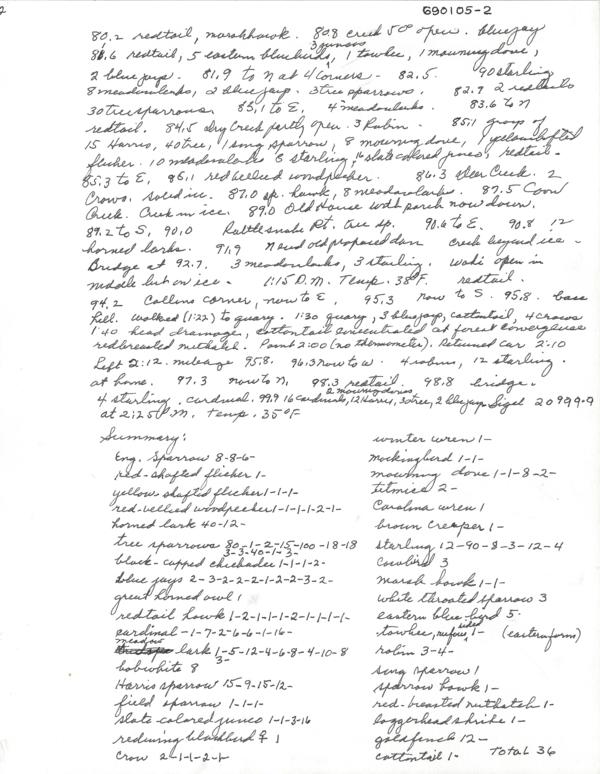 G90105-2
80.2 redtail, marsh hawk. 80.8 creek 50° open. bluejay
81.6 redtail, 5 eastern bluebirds, 3 juncos, 1 towhee, 1 mourning dove,
2 blue jays. 81.9 to N at 4 Corners - 82.5. 90 starling
8 meadowlarks, 2 blue jays. 3 tree sparrows. 82.9 2 redtails
30 tree sparrows. 83.1 to E. 4 meadowlarks. 83.6 to N
redtail. 84.5 dry Creek partly open. 3 Robin. - 85.1 group of
15 Harris, 40 tree, 1 song sparrow, 8 mourning dove, 1 yellowshafted
flicker. 10 meadowlarks 8 starling, 16 slate colored junco, redtail.
85.3 to E, 86.1 red bellied woodpecker. 86.3 Deer Creek. 2
Crows. solid ice. 87.0 sp. hawk, 8 meadowlarks. 87.5 Coon
Creek. Creek in ice. 89.0 Old House with porch now down.
89.2 to S, 90.0 Rattlesnake Pt. tree sp. 90.6 to E. 90.8 12
horned larks. 91.9 N end old proposed dam creek beyond ice -
Bridge at 92.7. 3 meadowlarks, 3 starling. open in
middle but on ice - 1:15 P.M. Temp. 38°F. redtail.
94.2 Collins corner, now to E, 95.3 now to S. 95.8. base
hill. walked (1:22) to quarry. 1:30 quarry, 3 bluejays, cottontail, 4 crows
1:40 head drainage, cottontail concentrated at forest convergence
redbreasted nuthatch. Point 2:00 (no thermometer). Returned car 2:10
Left 2:12. mileage 95.8. 96.3 now to W. 4 robins, 12 starling.
at home. 97.3 now to N, 98.3 redtail. 98.8 bridge.
4 starling. cardinal. 99.9 16 cardinals, 2 mourning doves, 12 Harris, 3 tree, 2 blue jays. Sigel 20999.9
at 2:25 P.M. Temp. 35°F
Summary:
Eng. Sparrow 8-8-6-
red-shafted flicker 1-
yellow shafted flicker 1-1-1-
red-bellied woodpecker 1-1-1-1-2-1-
horned lark 40-12-
tree sparrows 80-1-2-15-100-18-18
3-3-40-1-3-
black-capped chickadee 1-1-1-2-
blue jays 2-3-2-2-2-1-2-2-3-2-
great horned owl 1
redtail hawk 1-2-1-1-1-2-1-1-1-1-
cardinal-1-7-2-6-6-1-16-
meadow lark 1-5-12-4-6-8-4-10-8
3-
bobwhite 8
Harris sparrow 15-9-15-12-
field sparrow 1-1-1-
slate colored junco 1-1-3-16
redwing blackbird ♀ 1
Crow 2-1-1-2-1-
winter wren 1-
mockingbird 1-1-
mourning dove 1-1-8-2-
titmice 2-
Carolina wren 1
brown creeper 1-
starling 12-90-8-3-12-4
Cowbird 3
marsh hawk 1-1-
White throated sparrow 3
eastern blue-byrd 5-
towhee, rufous sided 1- (eastern form)
robin 3-4-
song sparrow 1
sparrow hawk 1-
red-breasted nuthatch 1-
loggerhead shrike 1-
goldfinch 12-
cottontail 1-
Total 36